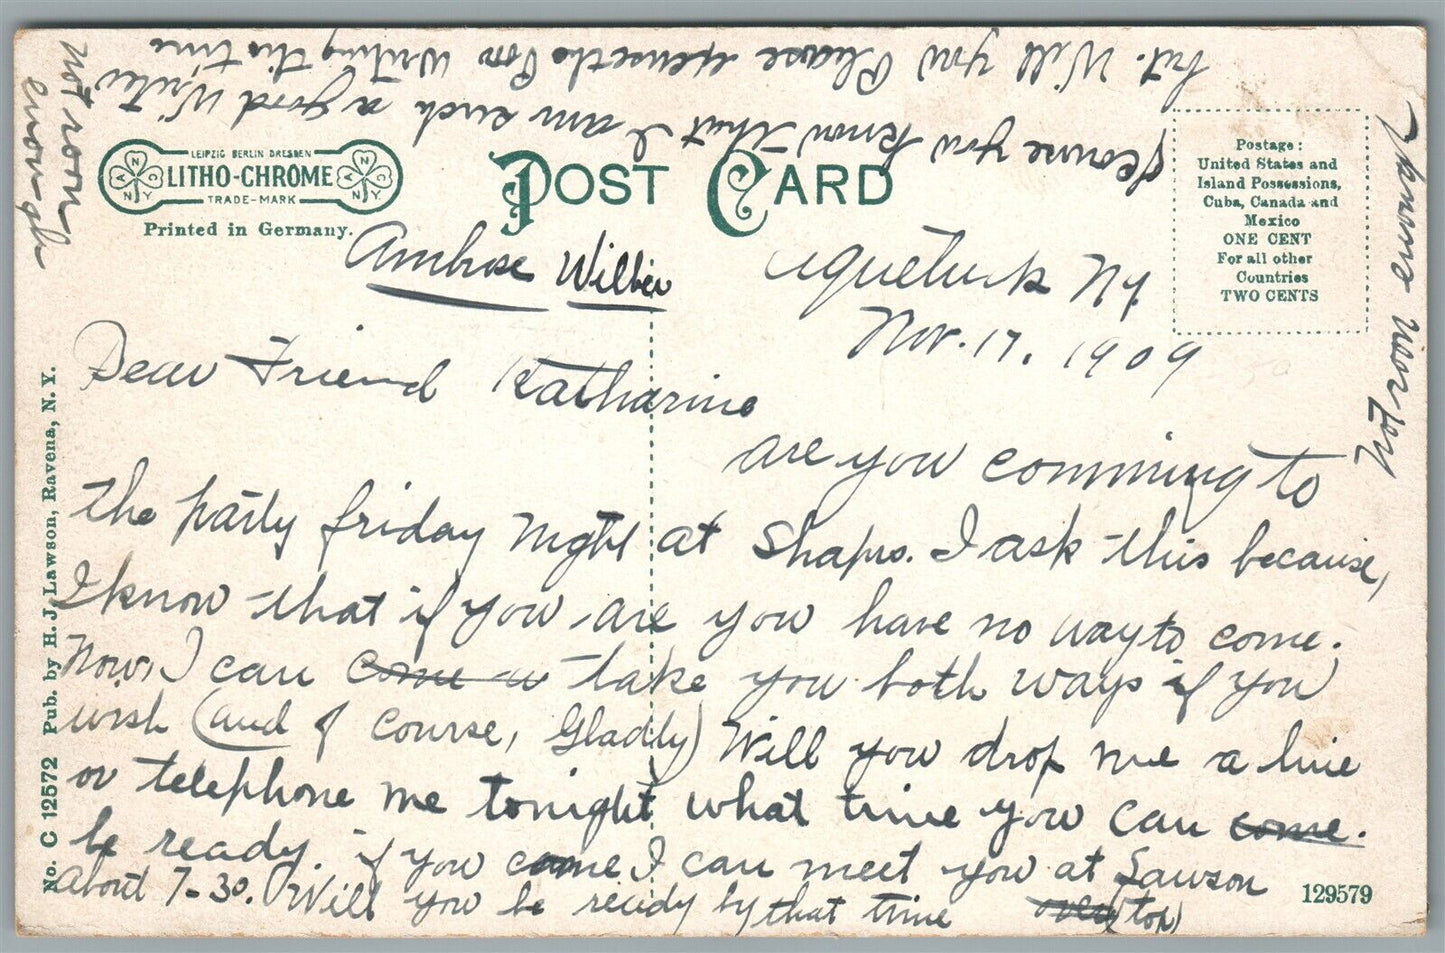 LEIPZIG BERLIN DRESDEN
LITHO-CHROME
TRADE-MARK
N A C N Y
N A C N Y
Printed in Germany.
POST CARD
Postage:
United States and
Island Possessions,
Cuba, Canada and
Mexico
ONE CENT
For all other
Countries
TWO CENTS
No. C 12572 Pub. by H. J. Lawson, Ravena, N. Y.
129579
Ambrose Wilbur
Aquetuck NY
Nov. 17, 1909
Dear Friend Katharine
are you comming to
the party friday night at Shaps. I ask this because,
I know that if you are you have no way to come.
Now, I can come take you both ways if you
wish (and of course, Gladly) Will you drop me a line
or telephone me tonight what time you can come.
be ready. if you come I can meet you at Lawson
about 7-30. Will you be ready by that time over (top)
but. Will you Please the Poor writing this time
course you know that I am such a good Writer
Not room enough
Not room